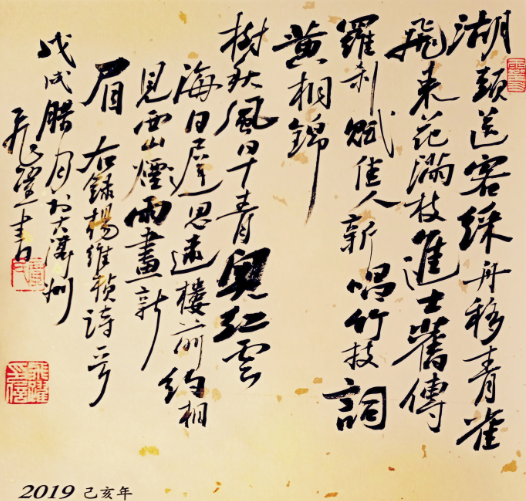 湖頭送客綵舟移青雀
飛來花滿枝進士舊傳
羅刹賦佳人新唱竹枝詞
黃柑錦
樹秋風日千青與紅雲
海日遲思遠樓前約相
見西山煙雨畫新
眉 右錄楊維楨詩一首
戊戌臘月於大
書
2019 己亥年